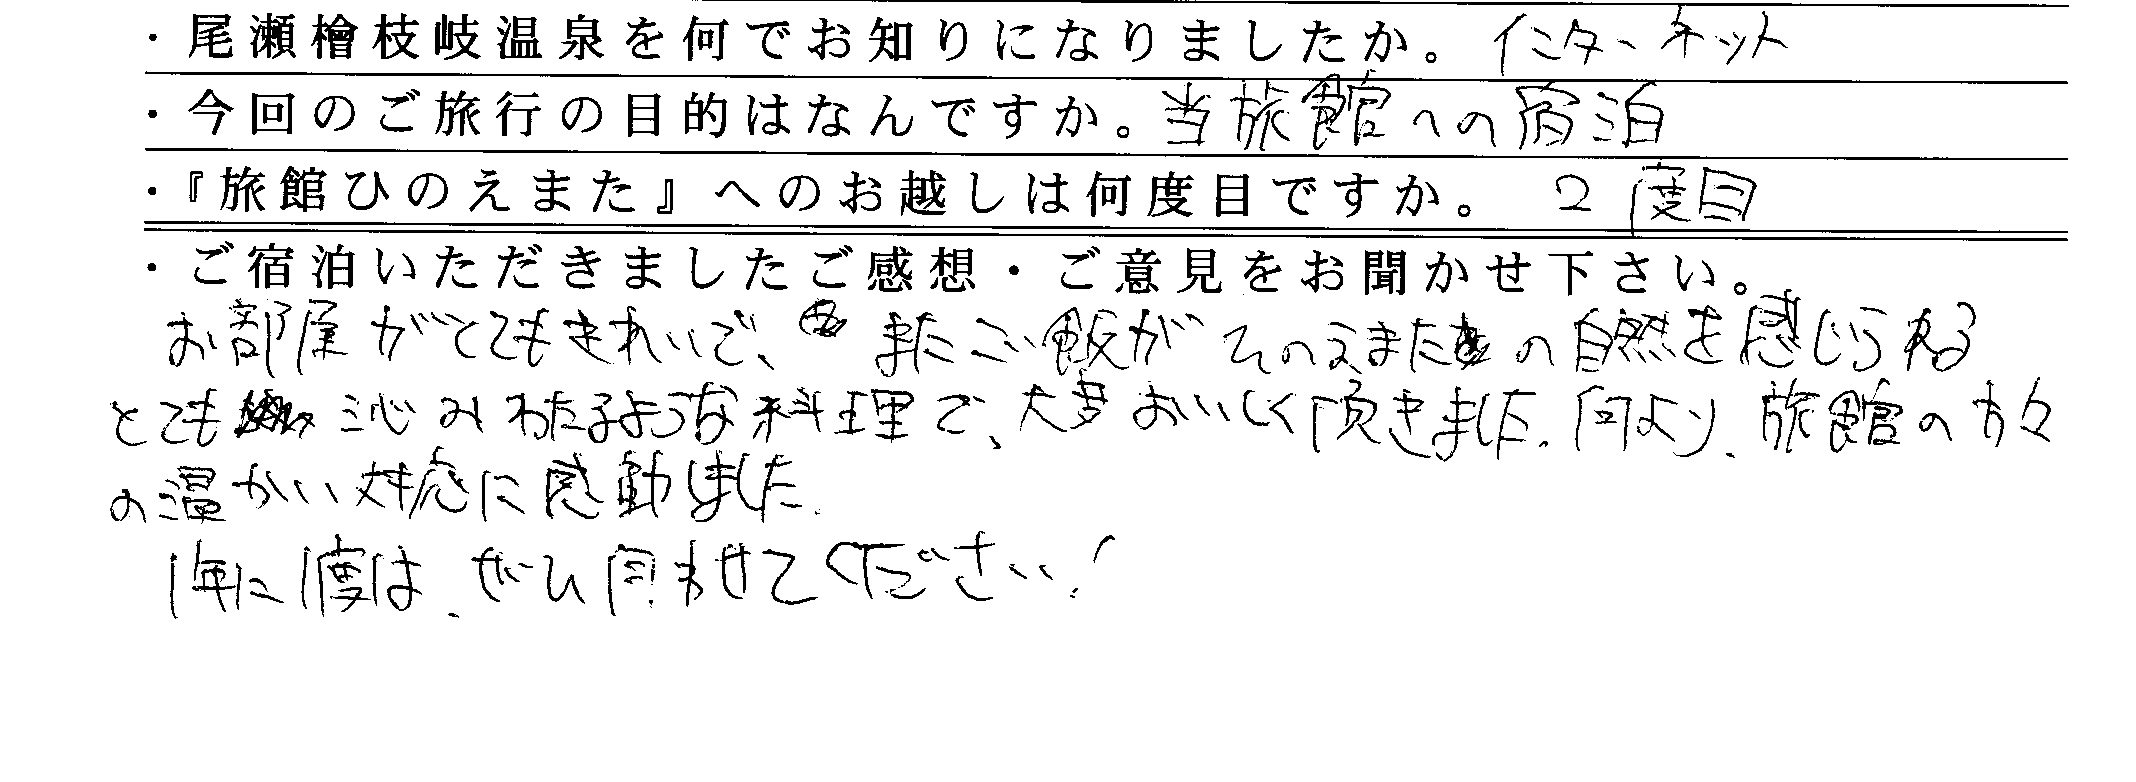 ・尾瀬檜枝岐温泉を何でお知りになりましたか。インターネット
・今回のご旅行の目的はなんですか。当旅館への宿泊
・『旅館ひのえまた』へのお越しは何度目ですか。２度目
・ご宿泊いただきましたご感想・ご意見をお聞かせ下さい。
お部屋がとてもきれいで、またご飯がひのえまたの自然を感じられる
とても沁みわたるような料理で、大変おいしく頂きました。何より、旅館の方々
の温かい対応に感動しました。
1年に1度は、ぜひ伺わせてください！